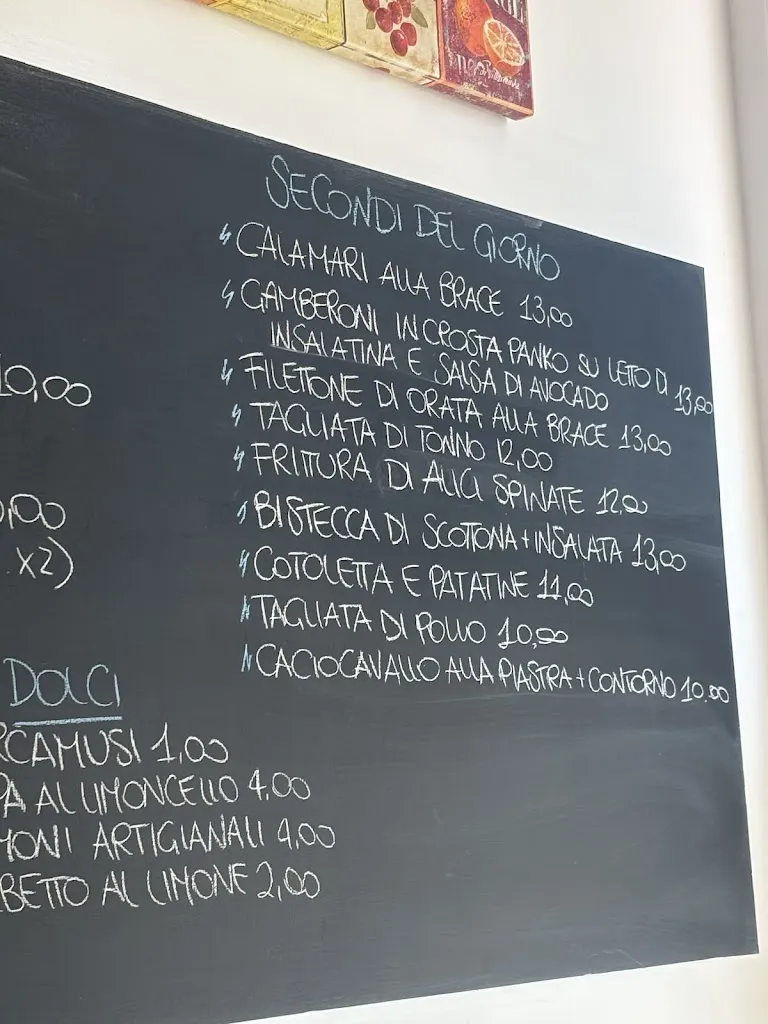 SECONDI DEL GIORNO
CALAMARI ALLA BRACE 13,00
GAMBERONI IN CROSTA PANKO SU LETTO DI
INSALATINA E SALSA DI AVOCADO 13,00
FILETTONE DI ORATA ALLA BRACE 13,00
TAGLIATA DI TONNO 12,00
FRITTURA DI ALICI SPINATE 12,00
BISTECCA DI SCOTTONA + INSALATA 13,00
COTOLETTA E PATATINE 11,00
TAGLIATA DI POLLO 10,00
CACIOCAVALLO ALLA PIASTRA + CONTORNO 10.00
10,00
0,00
x2)
DOLCI
RCAMUSI 1,00
PA AL LIMONCELLO 4,00
MONI ARTIGIANALI 4,00
BETTO AL LIMONE 2,00